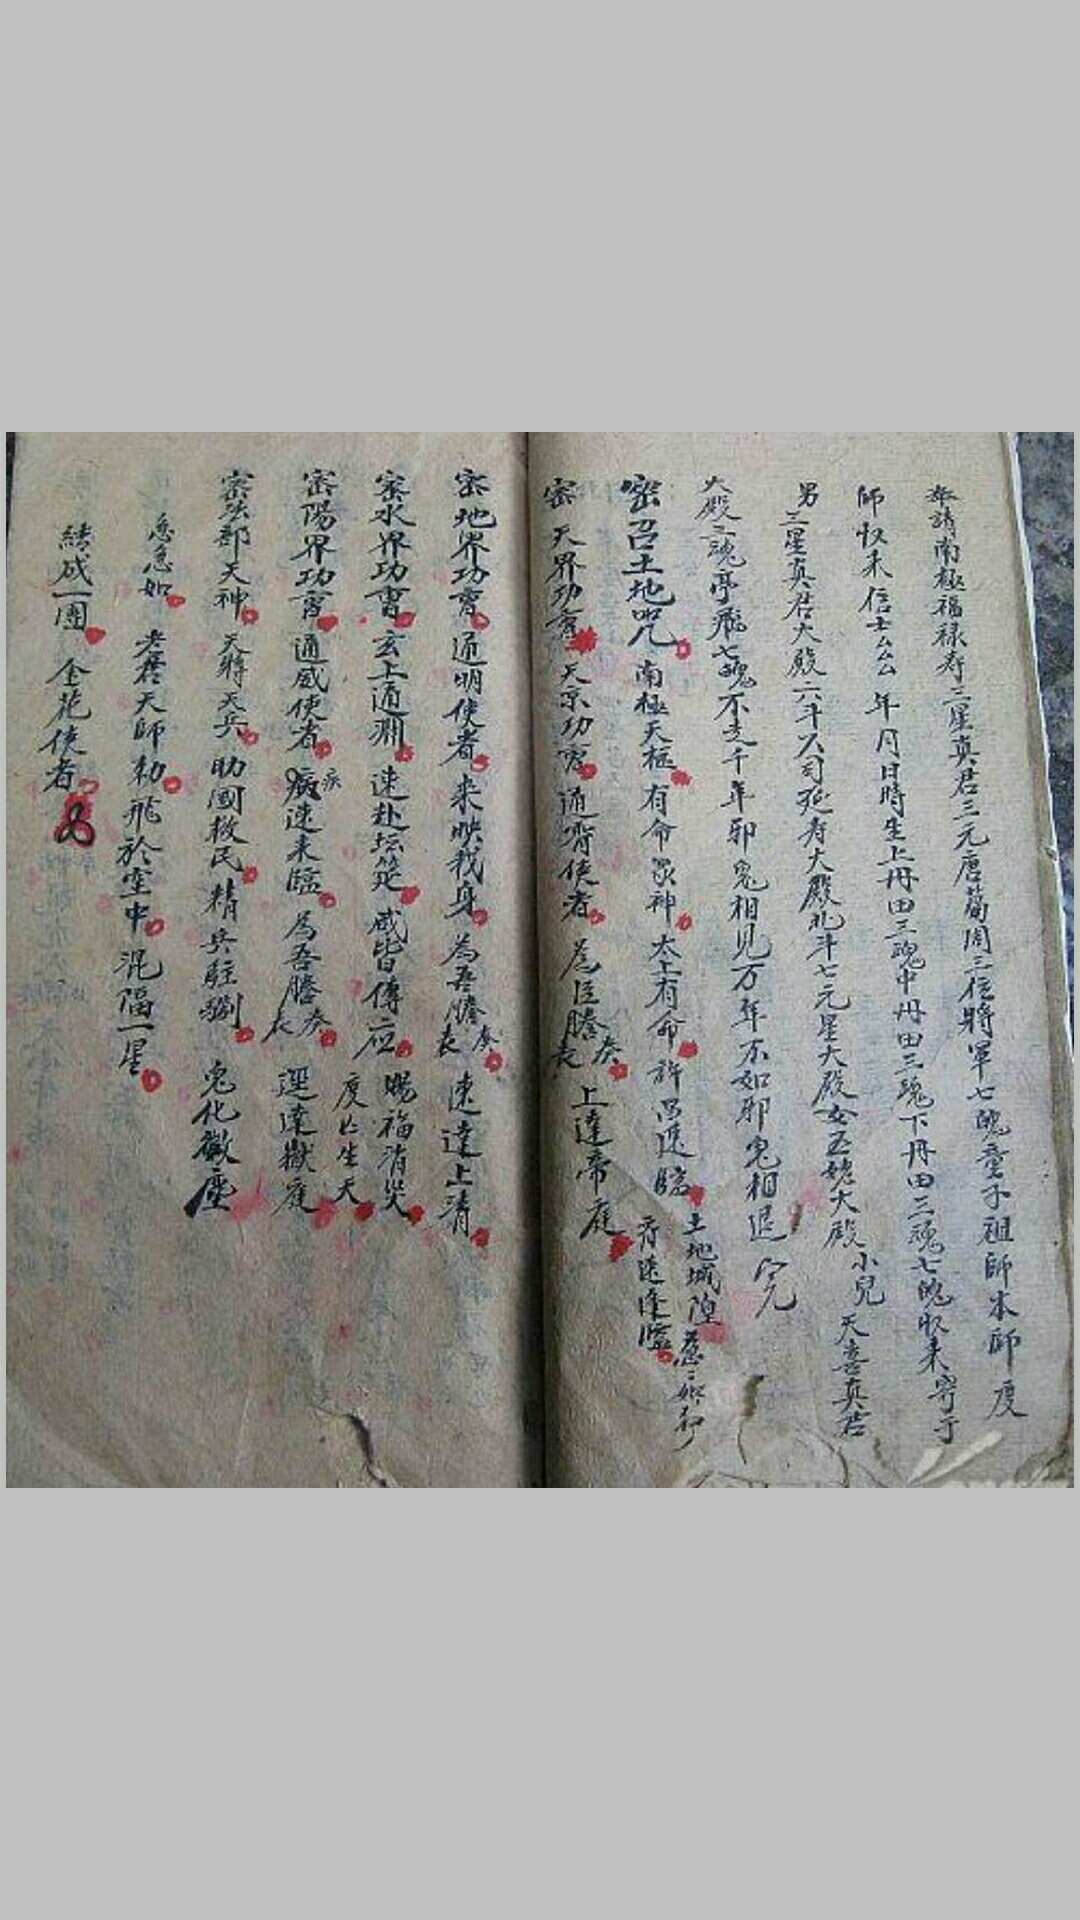 奉請南極福禄寿三星真君三元唐葛周三位將軍七魄童子祖師本師度
師收来信士厶厶 年月日時生上丹田三魂中丹田三魂下丹田三魂七魄收来寄于
男三星真君大殿六千人司延寿大殿北斗七元星大殿女五娘大殿 小兒 天喜真君
大殿三魂亭飛七魄不走千年邪鬼相見万年不如邪鬼相退 完
密召土地咒 南極天柩 有命 神 太上有命 許 進臨 土地城隍 急
密天界功曹 天京功曹 通霄使者 為臣謄奏表 上達帝庭
密地界功曹 通明使者 来映我身 為吾謄奏表 速達上清
密水界功曹 玄上通渊 速赴坛筵 咸皆傳应 赐福消災 度 生天
密陽界功曹 通威使者 疾速来臨 為吾謄奏表 逕達獄庭
密 都天神 天將天兵 助國救民 精兵駐劄 鬼化微塵
急急如 老君天師勅 飛於空中 混 一星
結成一團 金花使者